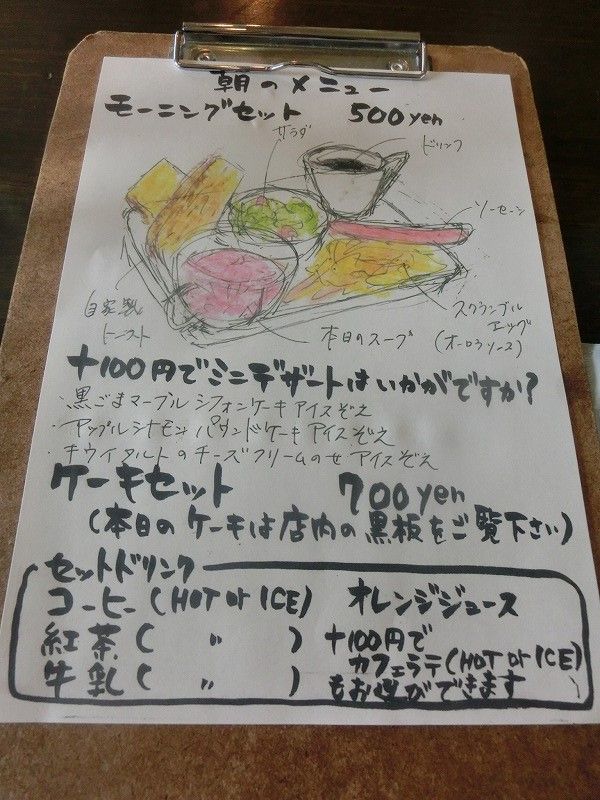 朝のメニュー
モーニングセット 500yen
サラダ
ドリンク
ソーセージ
自家製
トースト
本日のスープ
スクランブル
エッグ
(オーロラソース)
+100円でミニデザートはいかがですか?
・黒ごまマーブルシフォンケーキアイスぞえ
・アップルシナモンパウンドケーキアイスぞえ
・キウイタルトのチーズクリームのせアイスぞえ
ケーキセット 700yen
(本日のケーキは店内の黒板をご覧下さい)
セットドリンク
コーヒー(HOT or ICE) オレンジジュース
紅茶( 〃 ) +100円で
カフェラテ(HOT or ICE)
牛乳( 〃 ) もお選びができます